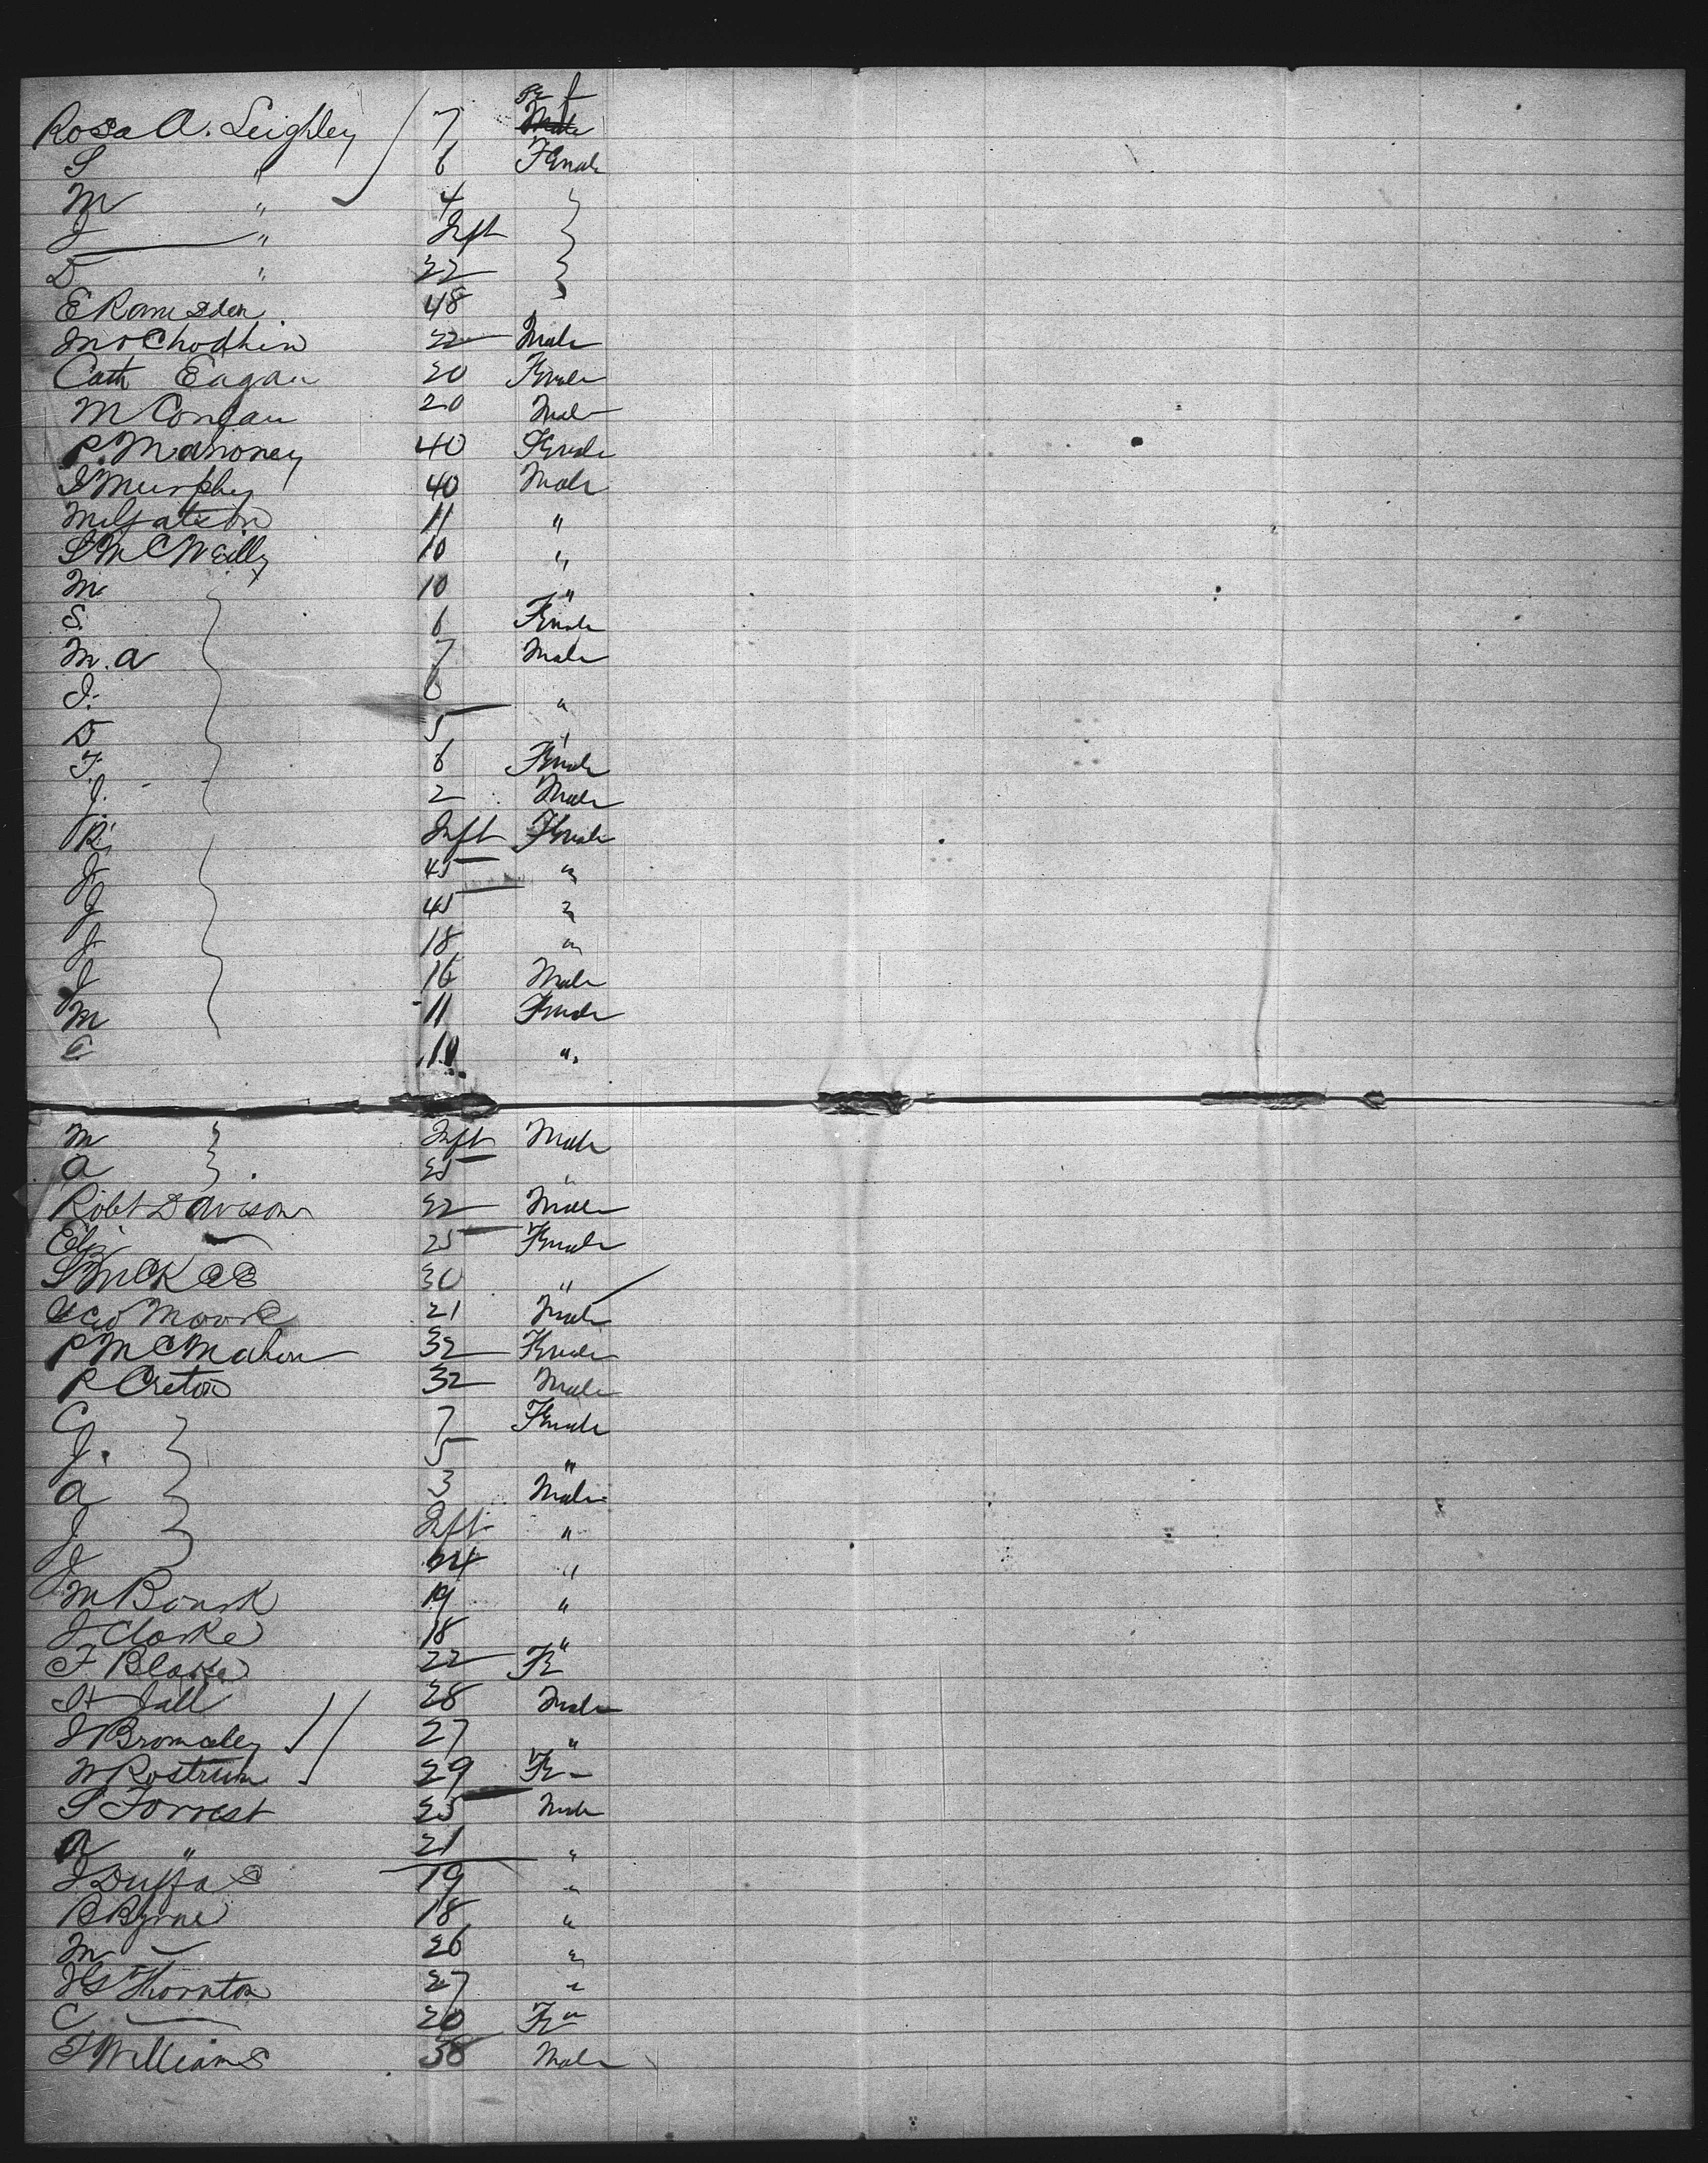 Fe f
Rosa A. Leighley 7 Male
S " 6 Female
M " 4
J " Inft
D " 22
E Ramsden 48
22 Male
Cath Eagan 20 Female
M Conlan 20 Male
P. Mahoney 40 Female
J Murphy 40 Male
11 "
S McNeilly 10 "
M 10 "
S. 6 Female
M. A 7 Male
J. 6 "
D 5 "
F. 6 Female
J. 2 Male
R. Inft Female
J 45 "
J 45 "
J 18 "
J 16 Male
M 11 Female
C 10 "
M Inft Male
A 25 "
Robt Davison 22 Male
Eliz 25 Female
S McKee 30 "
Geo Moore 21 Male
P McMahon 32 Female
P Creton 32 Male
C 7 Female
J. 5 "
A 3 Male
J Inft "
J 24 "
M Bourk 19 "
J Clarke 18 "
F Blake 22 Fe
H Jall 28 Male
J Bromaley 27 "
W Rostrum 29 Fe
S Forrest 25 Male
A " 21 "
J Duffas 19 "
B Byrne 18 "
M 26 "
J G Thornton 27 "
C 20 Fe
T Williams 38 Male